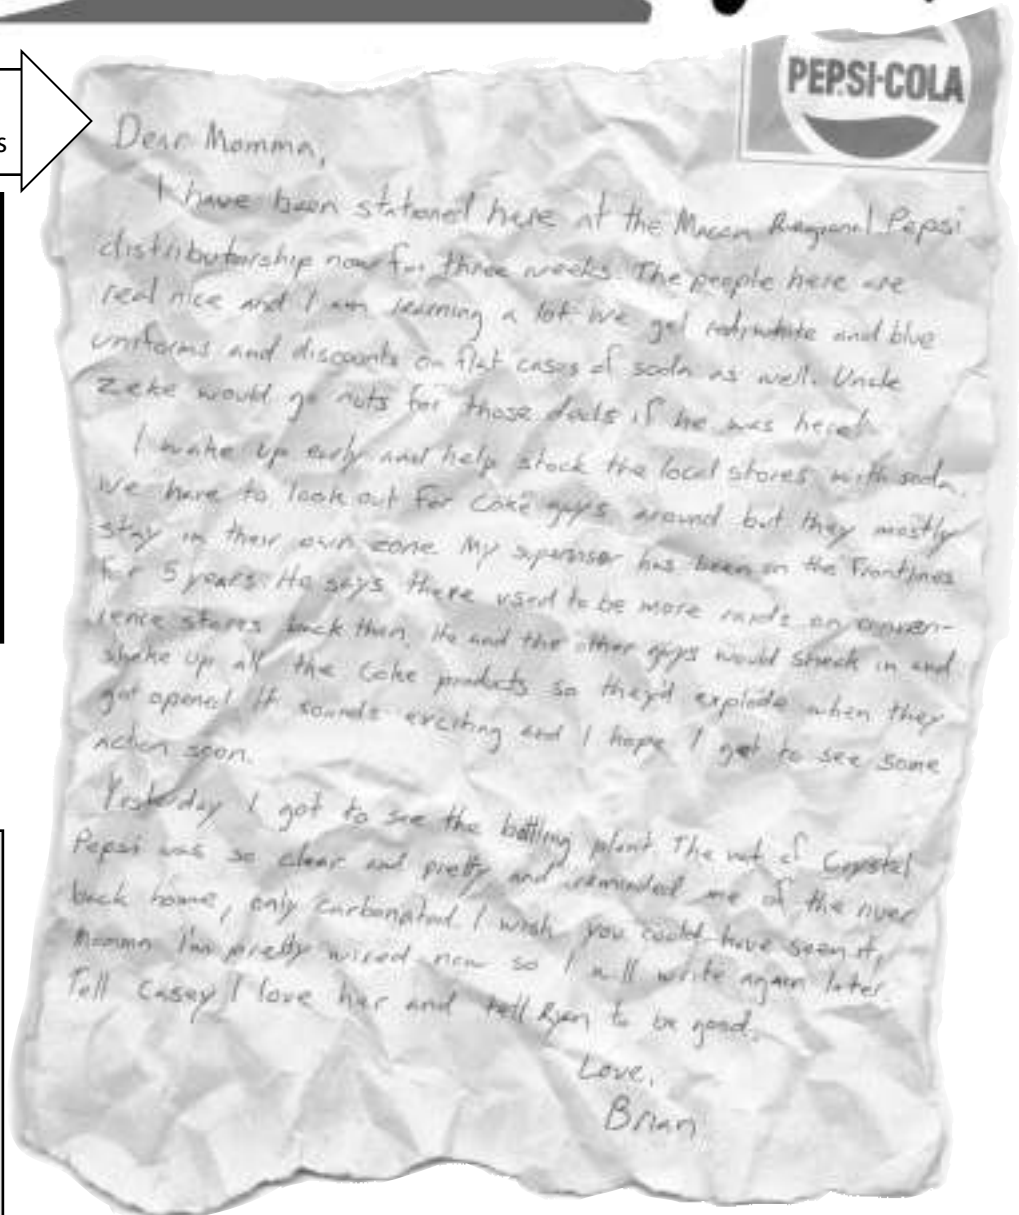 s
PEPSI-COLA
Dear Momma,
I have been stationed here at the Macon Regional Pepsi
distributorship now for three weeks. The people here are
real nice and I am learning a lot. We get red, white and blue
uniforms and discounts on flat cases of soda as well. Uncle
Zeke would go nuts for those deals if he was here!
I wake up early and help stock the local stores with soda.
We have to look out for Coke guys around but they mostly
stay in their own zone. My supervisor has been on the frontlines
for 5 years. He says there used to be more raids on conven-
ience stores back then. He and the other guys would sneak in and
shake up all the Coke products so they'd explode when they
got opened. It sounds exciting and I hope I get to see some
action soon.
Yesterday I got to see the bottling plant. The vat of Crystal
Pepsi was so clear and pretty and reminded me of the river
back home, only carbonated. I wish you could have seen it,
Momma. I'm pretty wired now so I will write again later.
Tell Casey I love her and tell Ryan to be good.
Love,
Brian